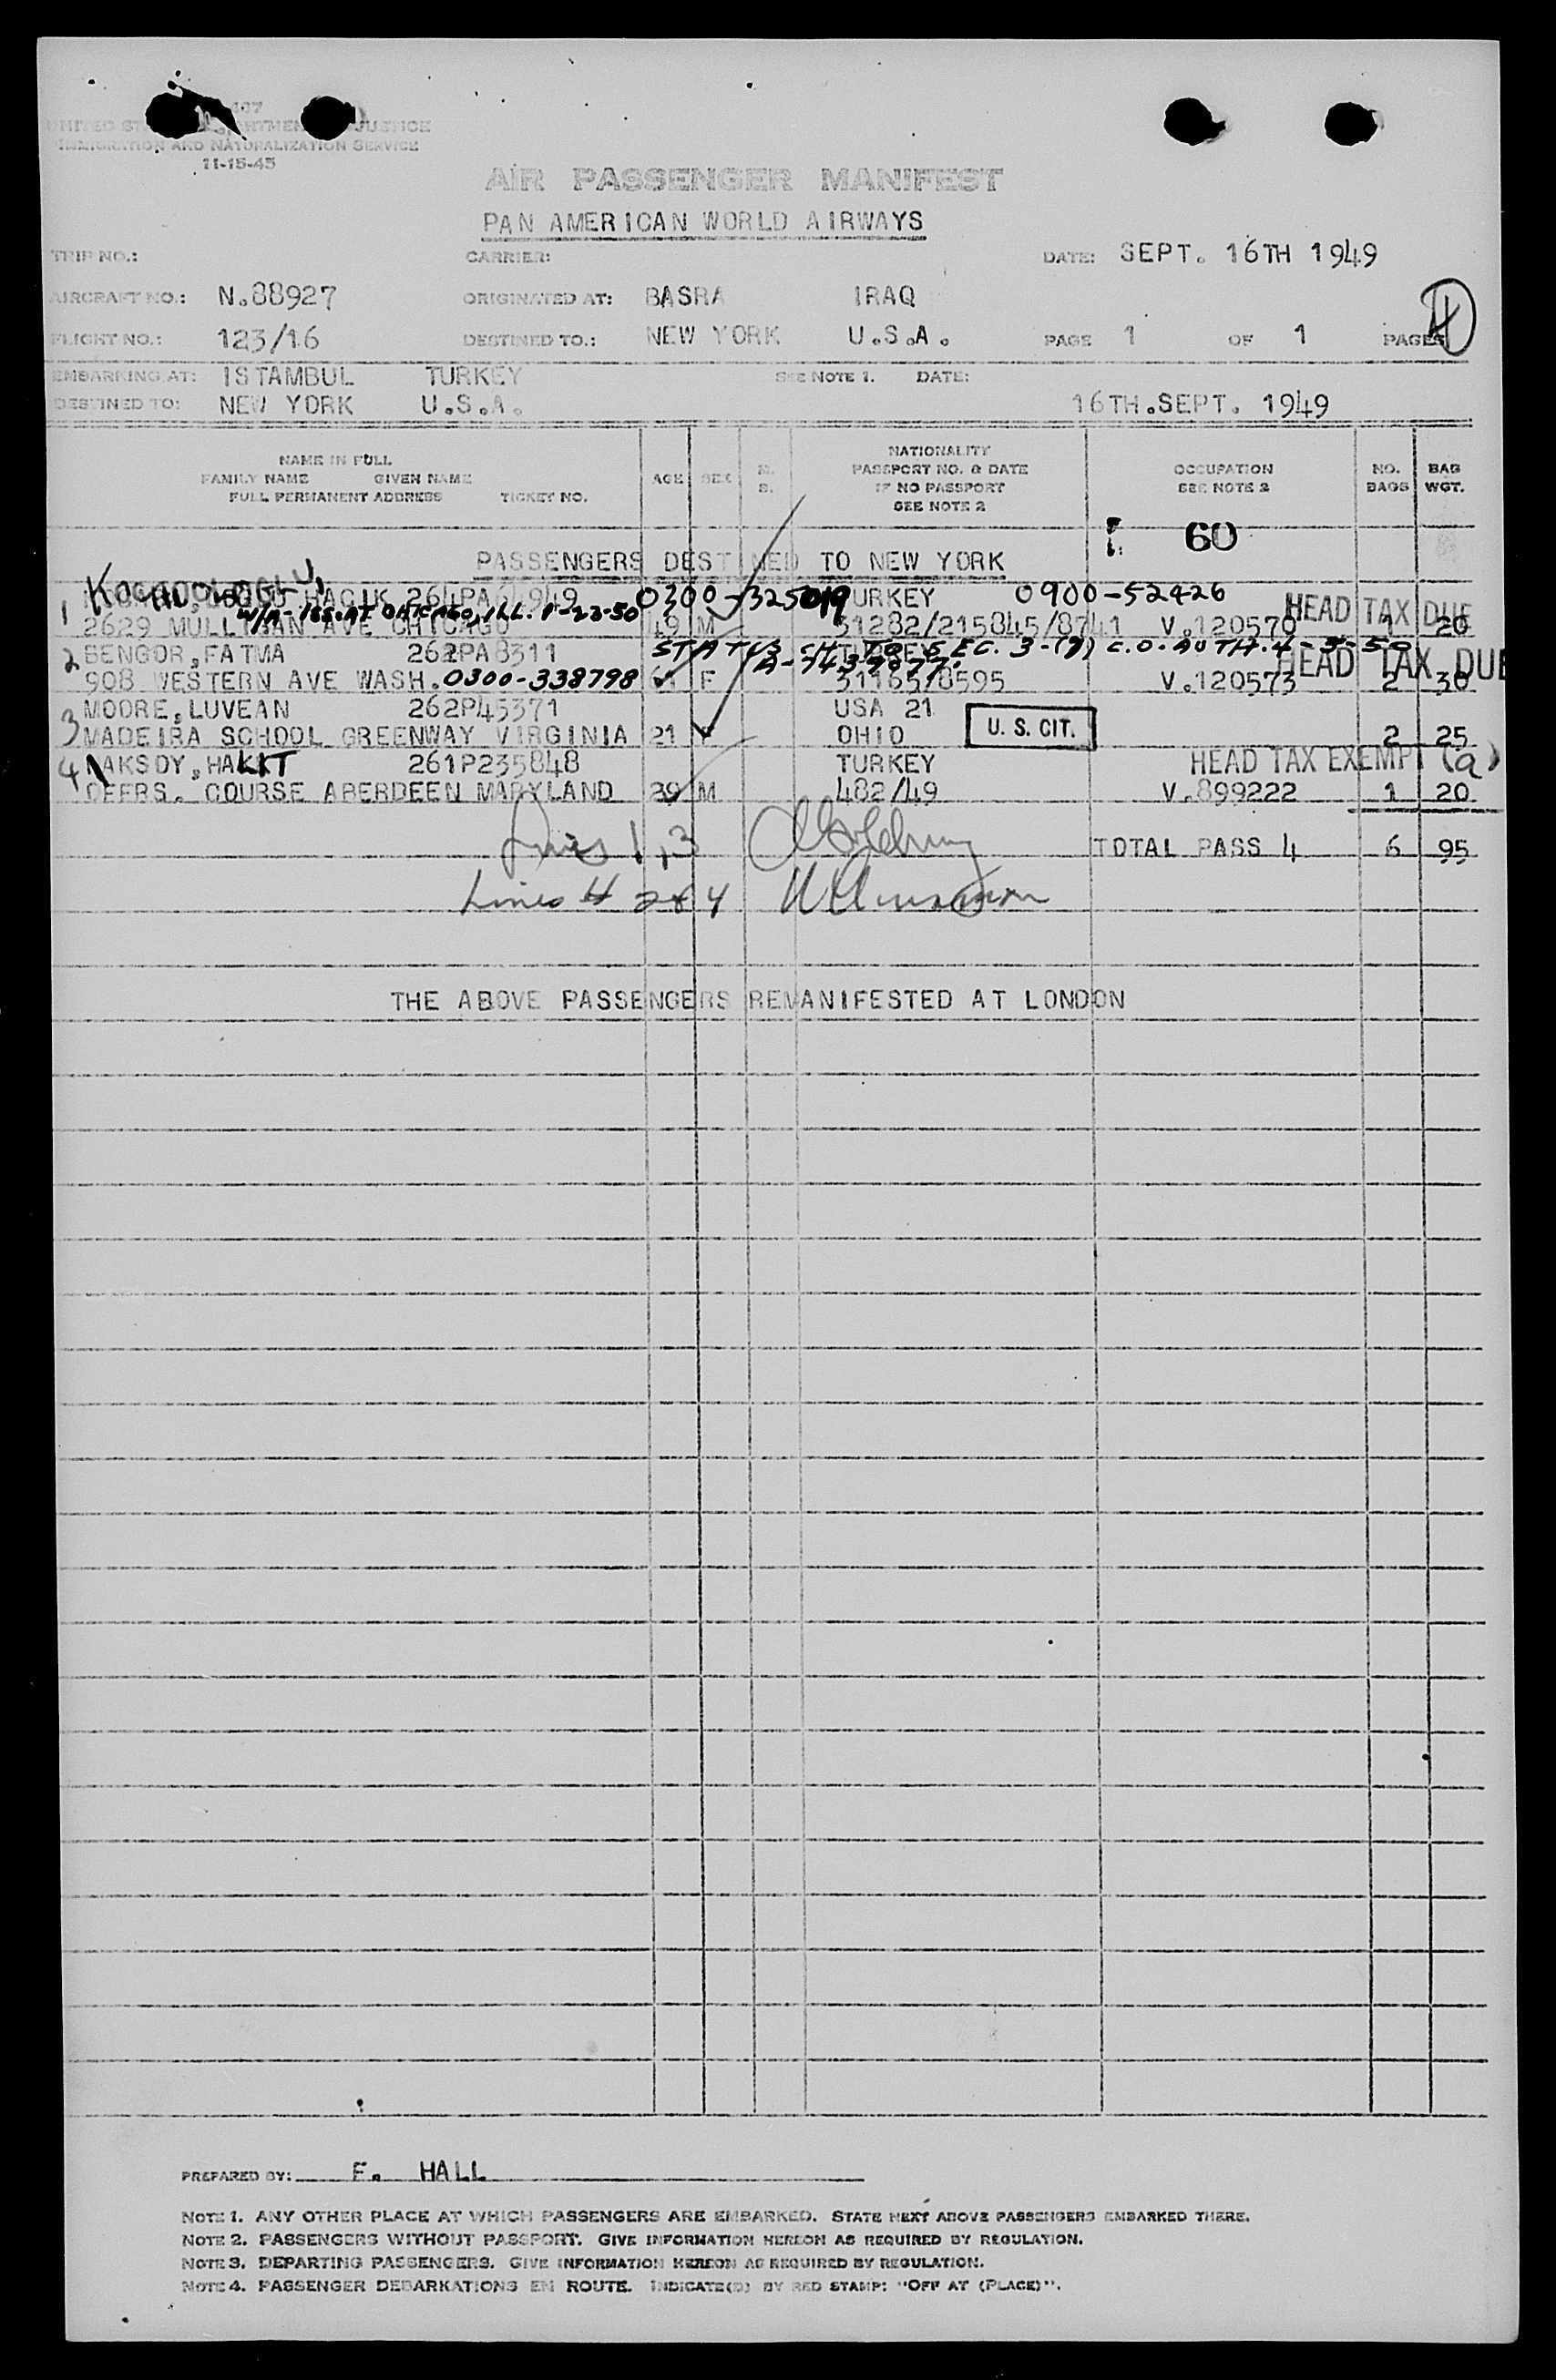 11-15-45
IMMIGRATION AND NATURALIZATION SERVICE
AIR PASSENGER MANIFEST
PAN AMERICAN WORLD AIRWAYS
TRIP NO.: CARRIER: DATE: SEPT. 16TH 1949
AIRCRAFT NO.: N.88927 ORIGINATED AT: BASRA IRAQ
FLIGHT NO.: 123/16 DESTINED TO.: NEW YORK U.S.A. PAGE 1 OF 1 PAGES
EMBARKING AT: ISTAMBUL TURKEY SEE NOTE 1. DATE:
DESTINED TO: NEW YORK U.S.A. 16TH.SEPT. 1949
NAME IN FULL
FAMILY NAME GIVEN NAME
FULL PERMANENT ADDRESS TICKET NO.
AGE SEX M. S.
NATIONALITY
PASSPORT NO. & DATE
IF NO PASSPORT
SEE NOTE 2
OCCUPATION
SEE NOTE 2
NO. BAGS
BAG WGT.
60
PASSENGERS DESTINED TO NEW YORK
HACIK TURKEY 0900-52426
1 W/A-ISS.AT CHICAGO, ILL. HEAD TAX DUE
2629 MULLIGAN AVE CHICAGO 49 M 51282/215845/8741 V.120570 1 20
2 BENGOR,FATMA 262PA8311 STATUS CH. TO SEC. 3-(7) C.O. AUTH. 4-5-50
908 WESTERN AVE WASH. 0300-338798 F 31165/8595 V.120573 2 30 HEAD TAX DUE
MOORE,LUVEAN 262P45371 USA 21
3 MADEIRA SCHOOL GREENWAY VIRGINIA 21 F OHIO U. S. CIT. 2 25
4 AKSOY,HAKKIT 261P235848 TURKEY HEAD TAX EXEMPT (a)
OFFRS. COURSE ABERDEEN MARYLAND 29 M 482/49 V.899222 1 20
Lines 1,3 TOTAL PASS 4 6 95
Lines # 2 & 4
THE ABOVE PASSENGERS REMANIFESTED AT LONDON
PREPARED BY: F. HALL
NOTE 1. ANY OTHER PLACE AT WHICH PASSENGERS ARE EMBARKED. STATE NEXT ABOVE PASSENGERS EMBARKED THERE.
NOTE 2. PASSENGERS WITHOUT PASSPORT. GIVE INFORMATION HEREON AS REQUIRED BY REGULATION.
NOTE 3. DEPARTING PASSENGERS. GIVE INFORMATION HEREON AS REQUIRED BY REGULATION.
NOTE 4. PASSENGER DEBARKATIONS EN ROUTE. INDICATE(D) BY RED STAMP: "OFF AT (PLACE)".